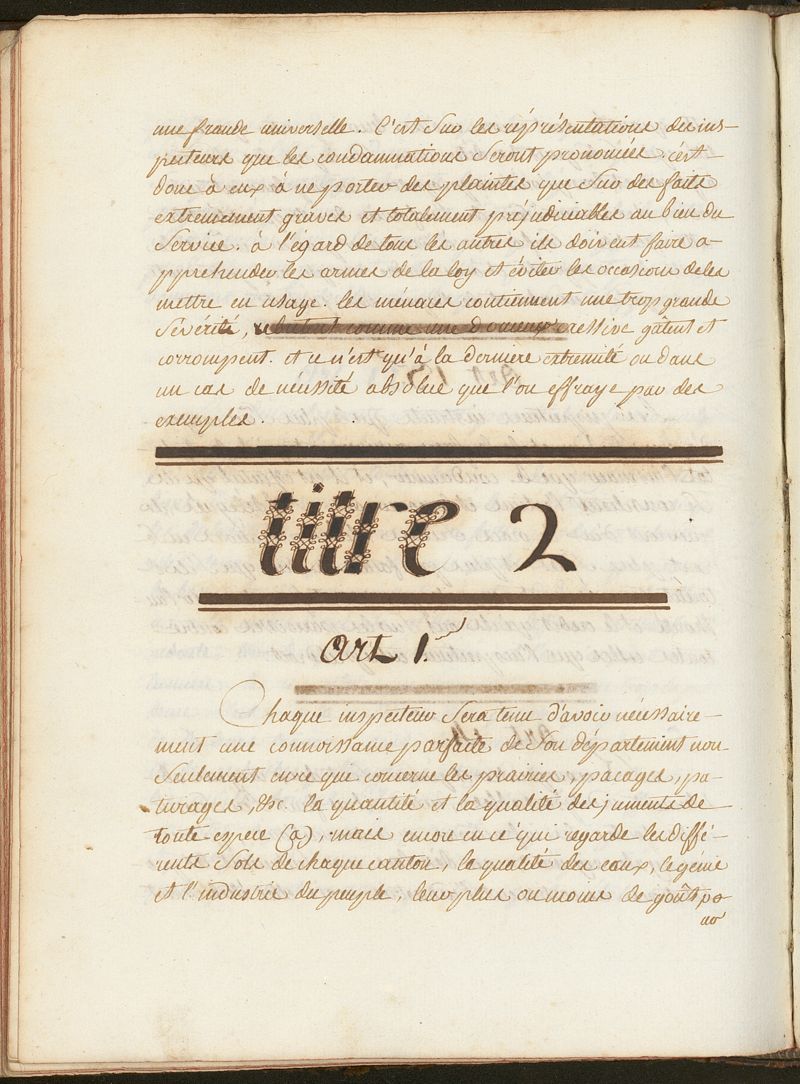 une fraude universelle. C'est Sur les réprésentations des ins-
pecteurs que les condamnations Seront prononcées. c'est
donc à eux à ne porter des plaintes que Sur des faits
extremement graves et totalement préjudiciables au bien du
Service. à l'égard de tous les autres ils doivent faire a-
pprehender les armes de la loy et éviter les occasions de les
mettre en usage. les ménaces contiennent une trop grande
Sévérité, rebutent comme une douceur excessive gâtent et
corrompent. et ce n'est qu'à la derniere extremité ou dans
un cas de nécessité absolüe que l'on effraye par des
exemples.
titre 2
art 1.er
Chaque inspecteur Sera tenu d'avoir nécessaire-
ment une connoissance parfaite de Son département non-
Seulement en ce que concerne les prairies, pacages, pa-
turages, &c. la quantité et la qualité des juments de
toute espece (a), mais encore en ce qui regarde les diffé-
rents Sols de chaque canton, la qualité des eaux, le genie
et l'industrie du peuple, leur plus ou moins de goûts po
ur